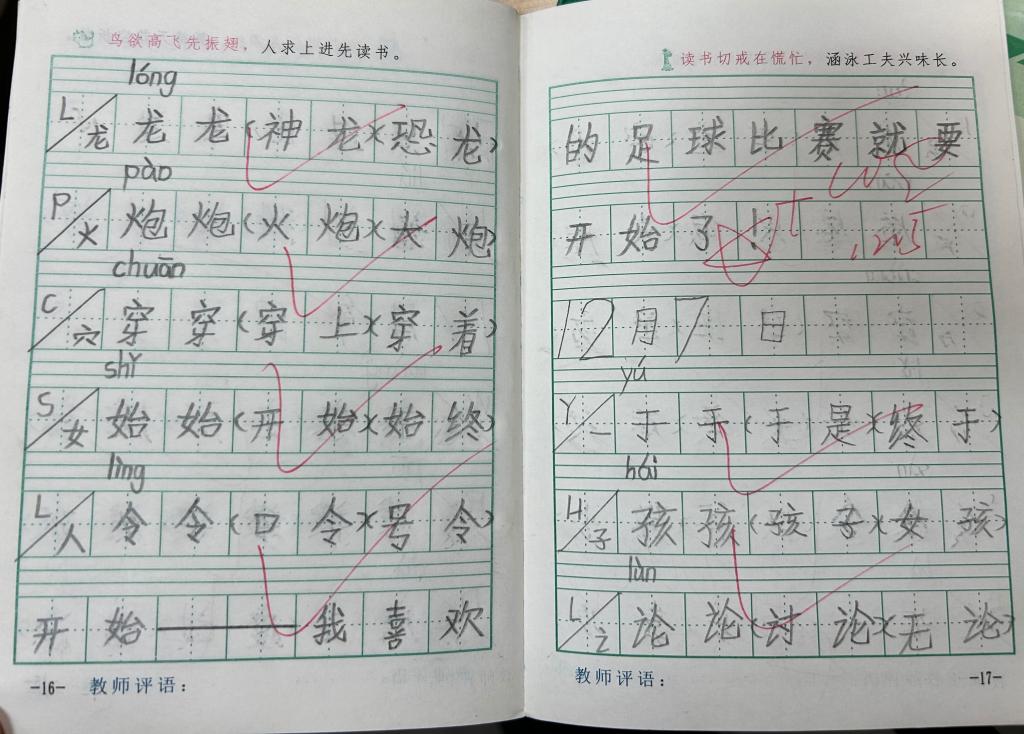 鸟欲高飞先振翅，人求上进先读书。
lóng
L 龙 龙 龙（神 龙）（恐 龙）
pào
P 火 炮 炮（火 炮）（大 炮）
chuān
C 穴 穿 穿（穿 上）（穿 着）
shǐ
S 女 始 始（开 始）（始 终）
lìng
L 人 令 令（口 令）（号 令）
开 始 —— 我 喜 欢
-16- 教师评语：
读书切戒在慌忙，涵泳工夫兴味长。
的 足 球 比 赛 就 要
开 始 了 ！
12 月 7 日
yú
Y 一 于 于（于 是）（终 于）
hái
H 子 孩 孩（孩 子）（女 孩）
lùn
L 讠 论 论（讨 论）（无 论）
教师评语： -17-